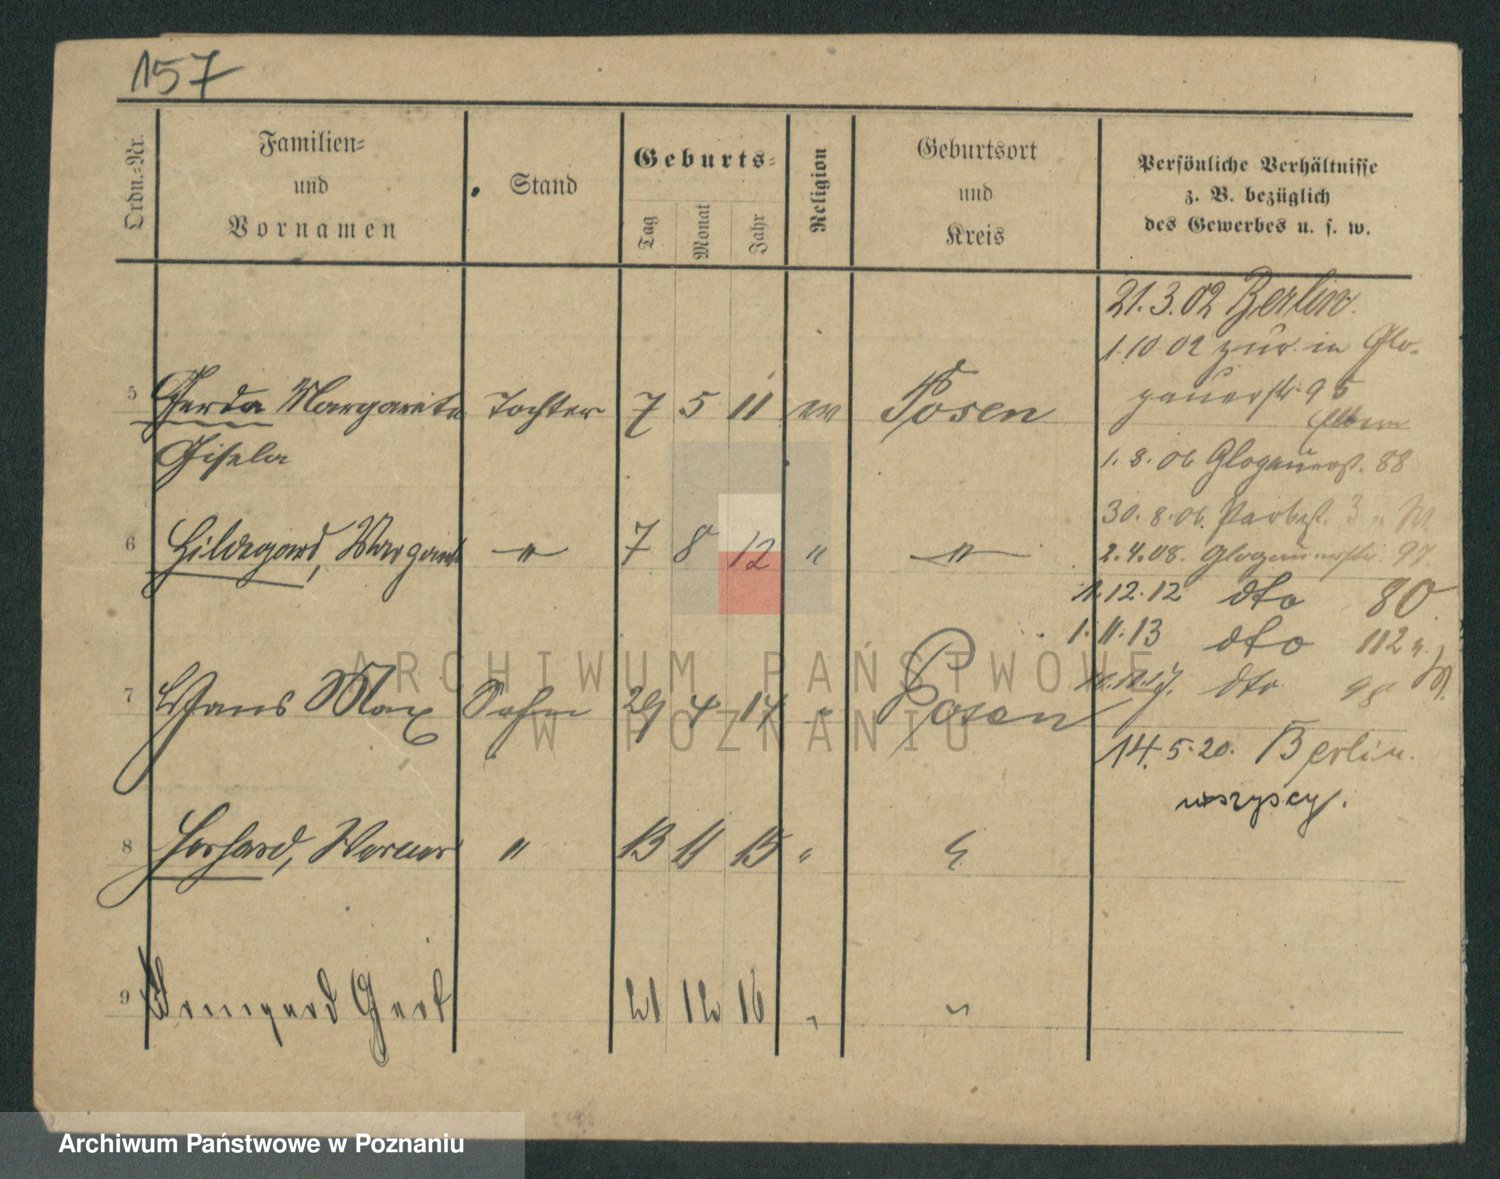 157
Ordn.-Nr.
Familien-
und
Vornamen
Stand
Geburts-
Tag
Monat
Jahr
Religion
Geburtsort
und
Kreis
Persönliche Verhältnisse
z. B. bezüglich
des Gewerbes u. s. w.
21.3.02 Berlin.
1.10 02 zur. in Glo-
gauerstr. 95
5 Gerda Margarete Tochter 7 5 11 ev Posen
Gisela
1.8.06 Glogauerst. 88
30.8.06.
6 Hildegard, Margarete " 7 8 12 " "
2.4.08. Glogauerstr. 97
12.12 dto 80
1.11.13 dto 112
7 Hans Max Sohn 29 4 14 " Posen
dto 98
14.5.20. Berlin.
wszyscy.
8 Gerhard, Werner " 13 11 15 " "
9 Irmgard Gert 21 12 16 " "
ARCHIWUM PAŃSTWOWE
W POZNANIU
Archiwum Państwowe w Poznaniu